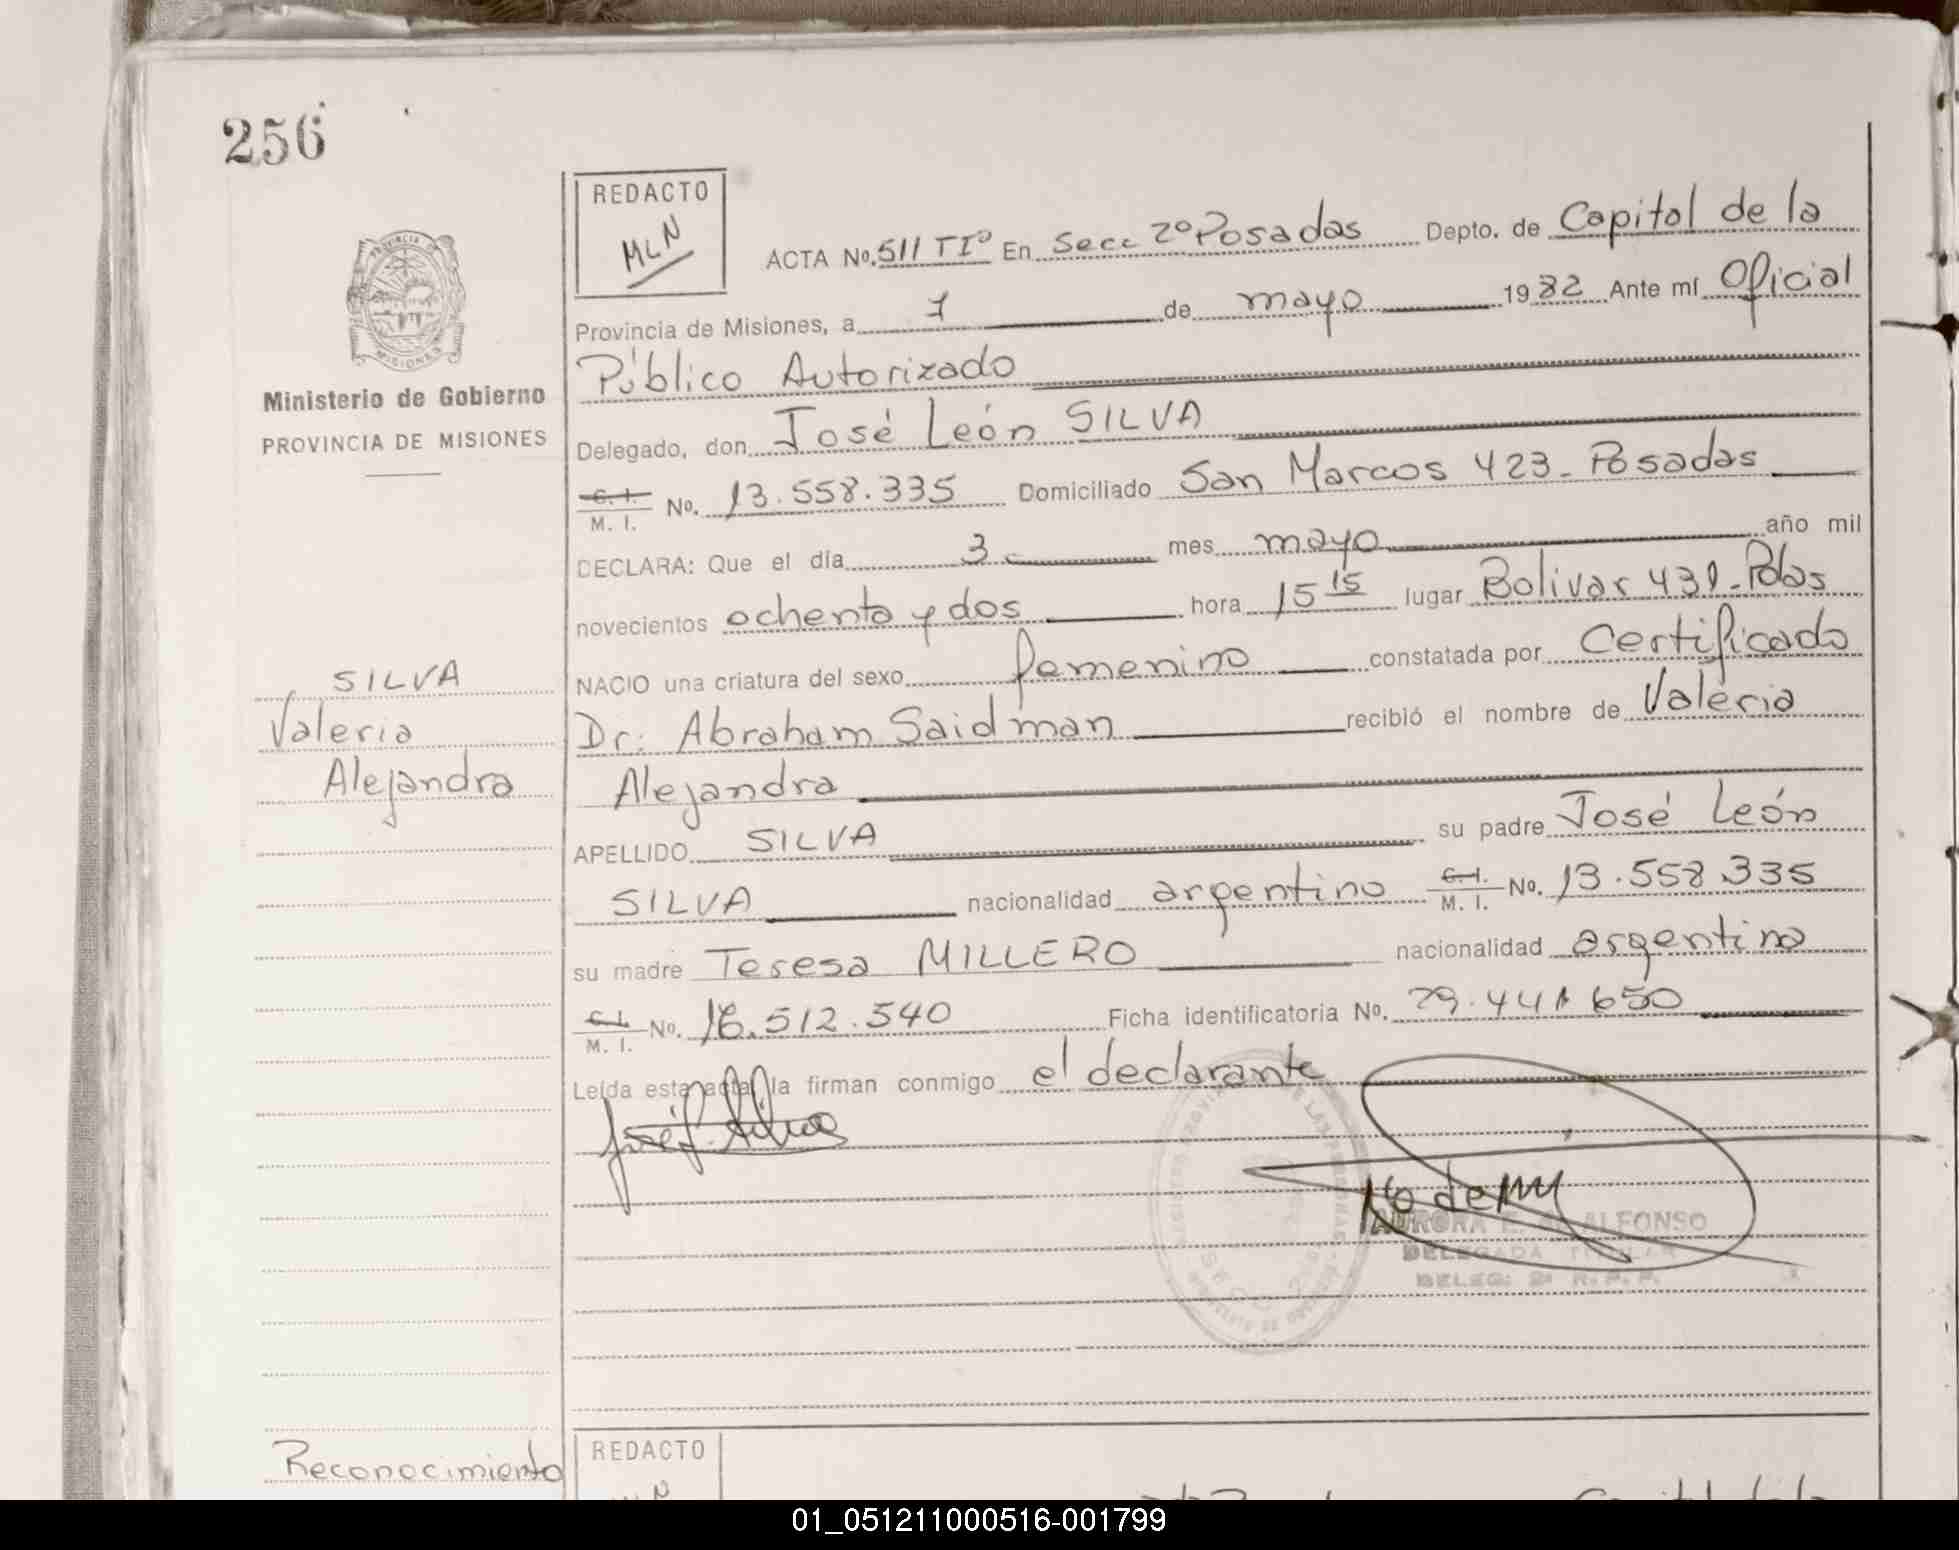 256
REDACTO
MLN
ACTA No. 511 TIº En Secc 2º Posadas Depto. de Capital de la
Provincia de Misiones, a 7 de mayo 1982 Ante mí Oficial
Público Autorizado
Delegado, don José León SILVA
C. I. M. I. No. 13.558.335 Domiciliado San Marcos 423 - Posadas
DECLARA: Que el día 3 mes mayo año mil
novecientos ochenta y dos hora 15 15 lugar Bolivar 431 - Pdas
NACIO una criatura del sexo femenino constatada por Certificado
Dr. Abraham Saidman recibió el nombre de Valeria
Alejandra
APELLIDO SILVA su padre José León
SILVA nacionalidad argentino C. I. M. I. No. 13.558.335
su madre Teresa MILLERO nacionalidad argentina
C. I. M. I. No. 16.512.540 Ficha identificatoria No. 29.441.650
Leída esta acta, la firman conmigo el declarante
José L. Silva
AURORA E. ALFONSO
DELEGADA TITULAR
DELEG. 2ª R. P. P.
PROVINCIA DE MISIONES
Ministerio de Gobierno
PROVINCIA DE MISIONES
SILVA
Valeria
Alejandra
Reconocimiento
REDACTO
01_051211000516-001799